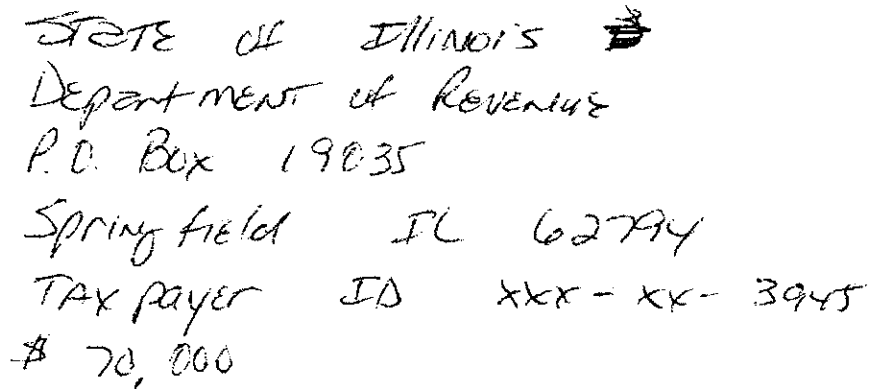 State of Illinois
Department of Revenue
P.O. Box 19035
Springfield IL 62794
Tax payer ID xxx-xx-3945
$ 70,000